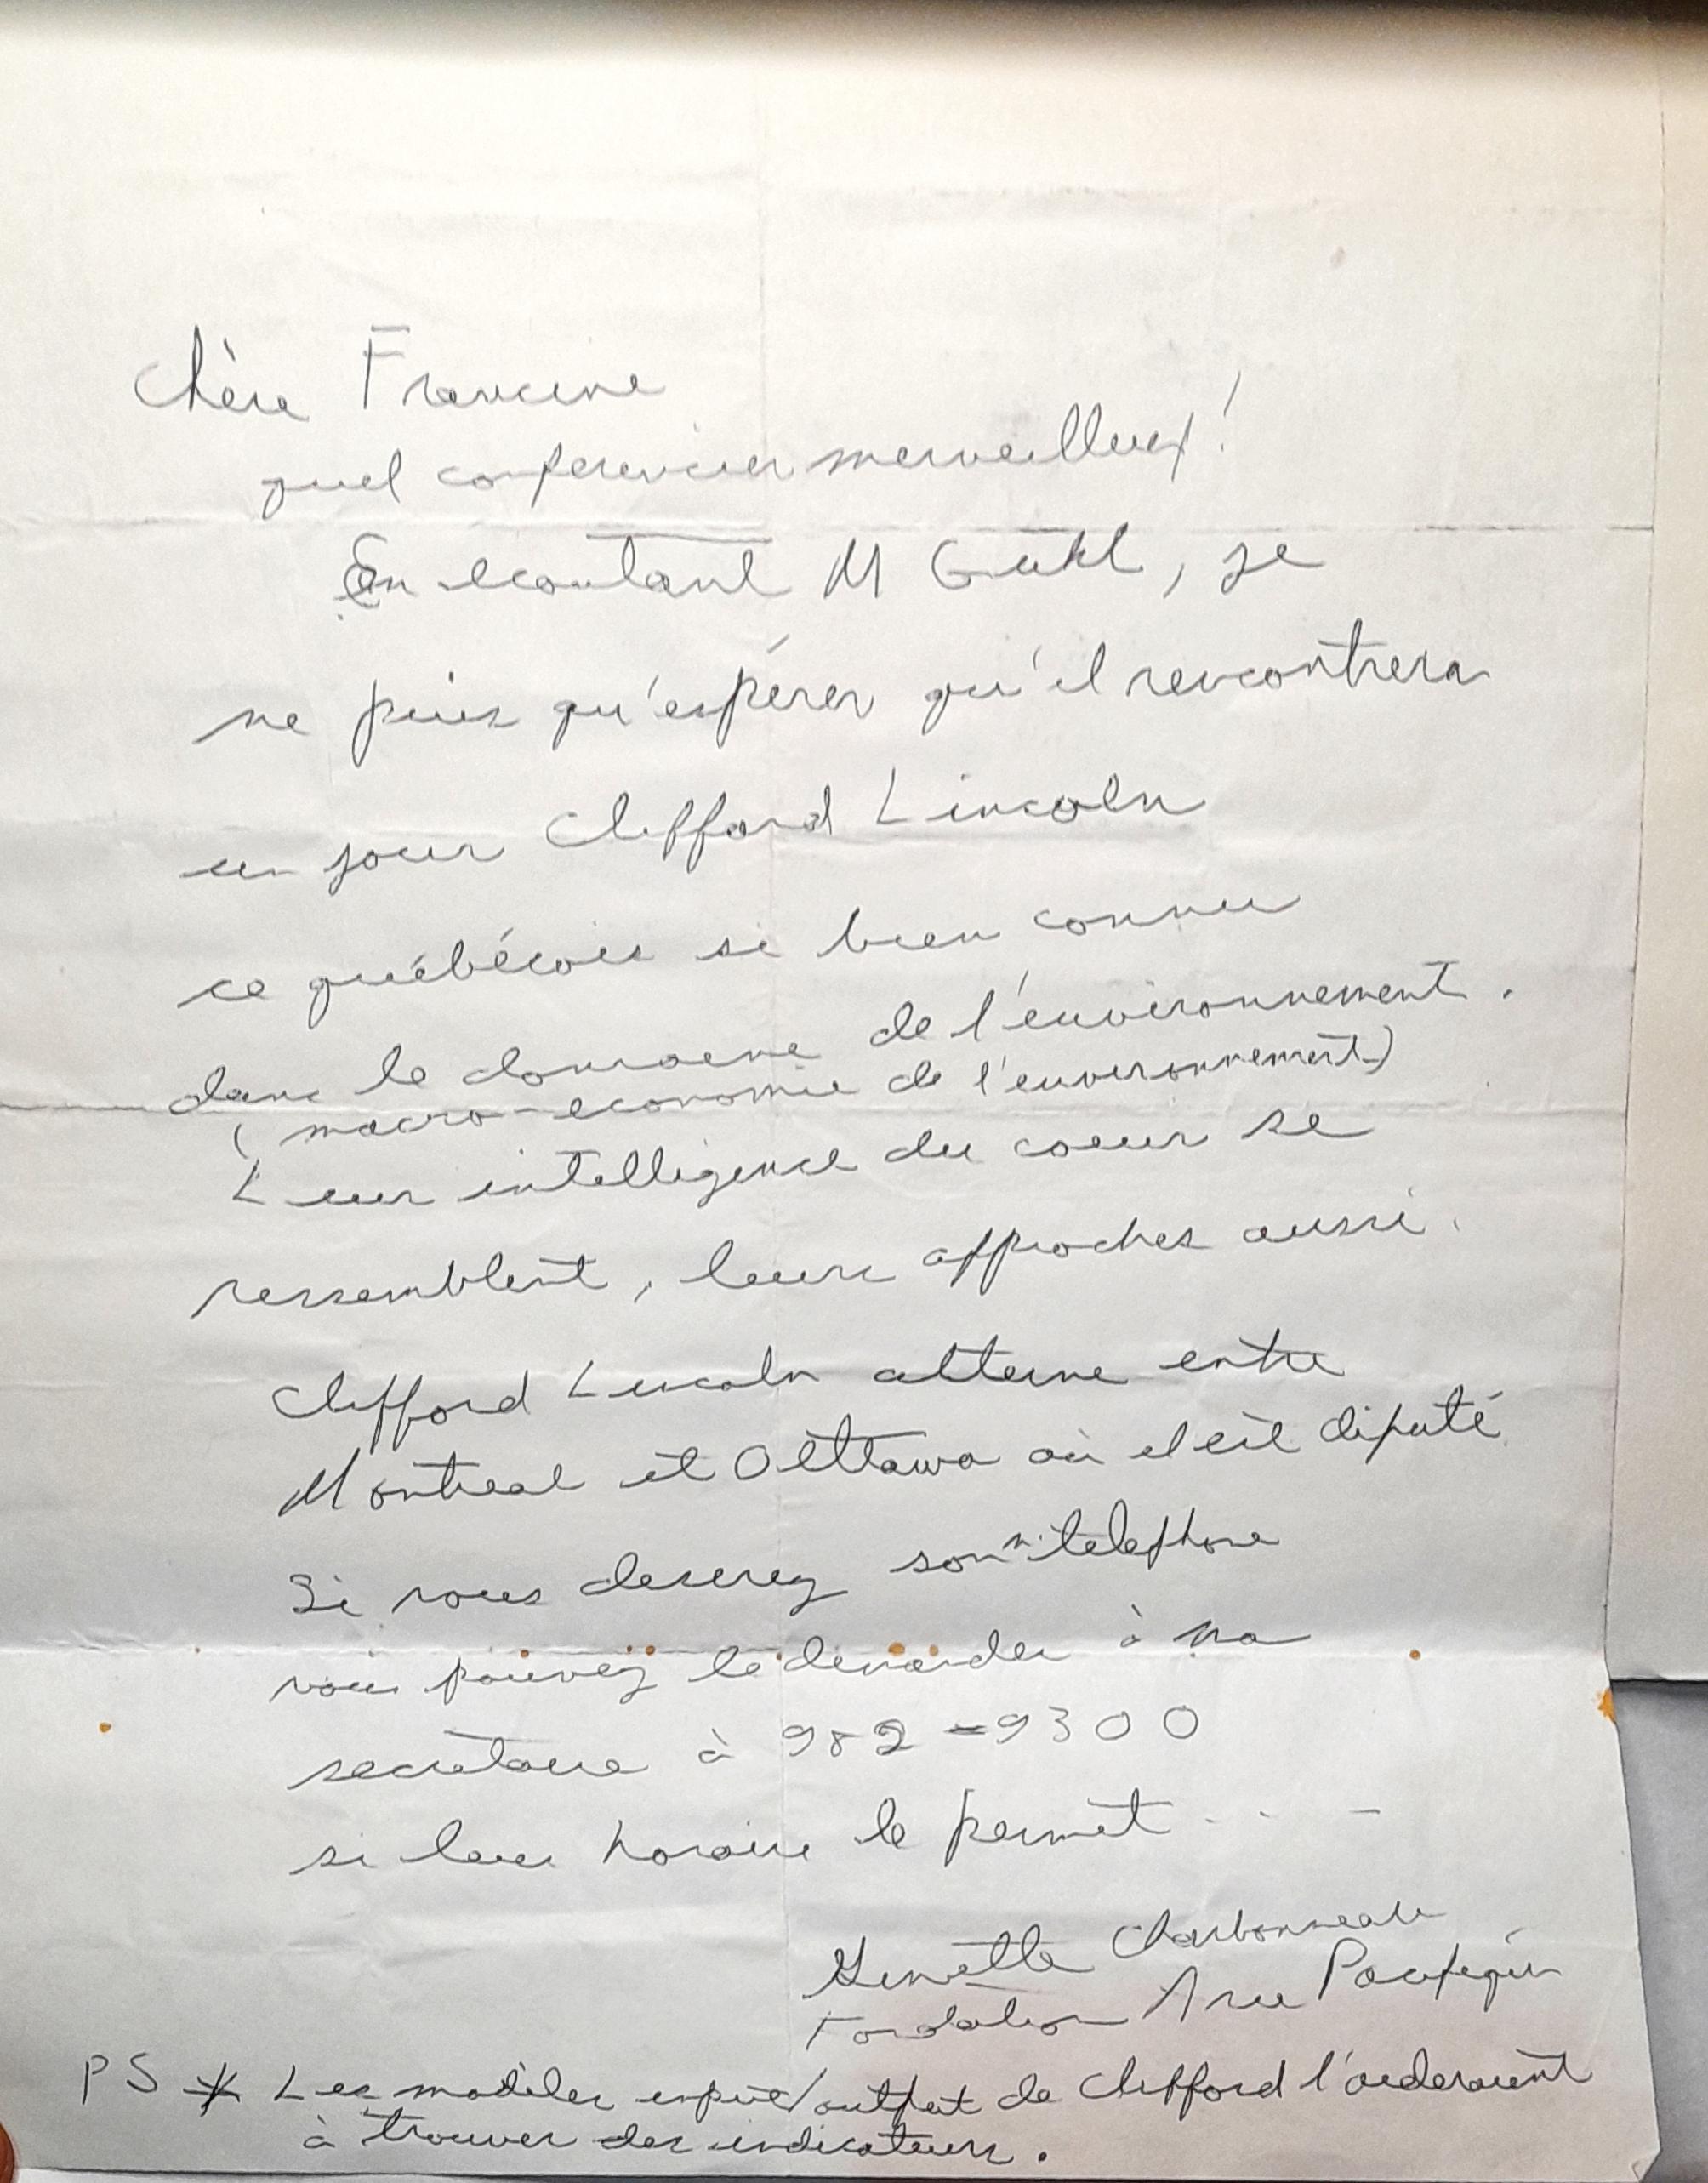 Chère Francine
quel conferencier merveilleux!
En ecoutant M Guhl, je
ne puis qu'espérer qu'il rencontrera
un jour Clifford Lincoln
ce québécois si bien connu
dans le domaine de l'environnement.
(macro-economie de l'environnement)
Leur intelligence du coeur se
ressemblent, leurs approches aussi.
Clifford Lincoln alterne entre
Montreal et Ottawa où il est député
Si vous desirez son n. telephone
vous pouvez le demander à ma
secretaire à 982-9300
si leur horaire le permet . . -
Charbonneau
Fondation
PS * Les modèles input/output de Clifford l'aideraient
à trouver des indicateurs.